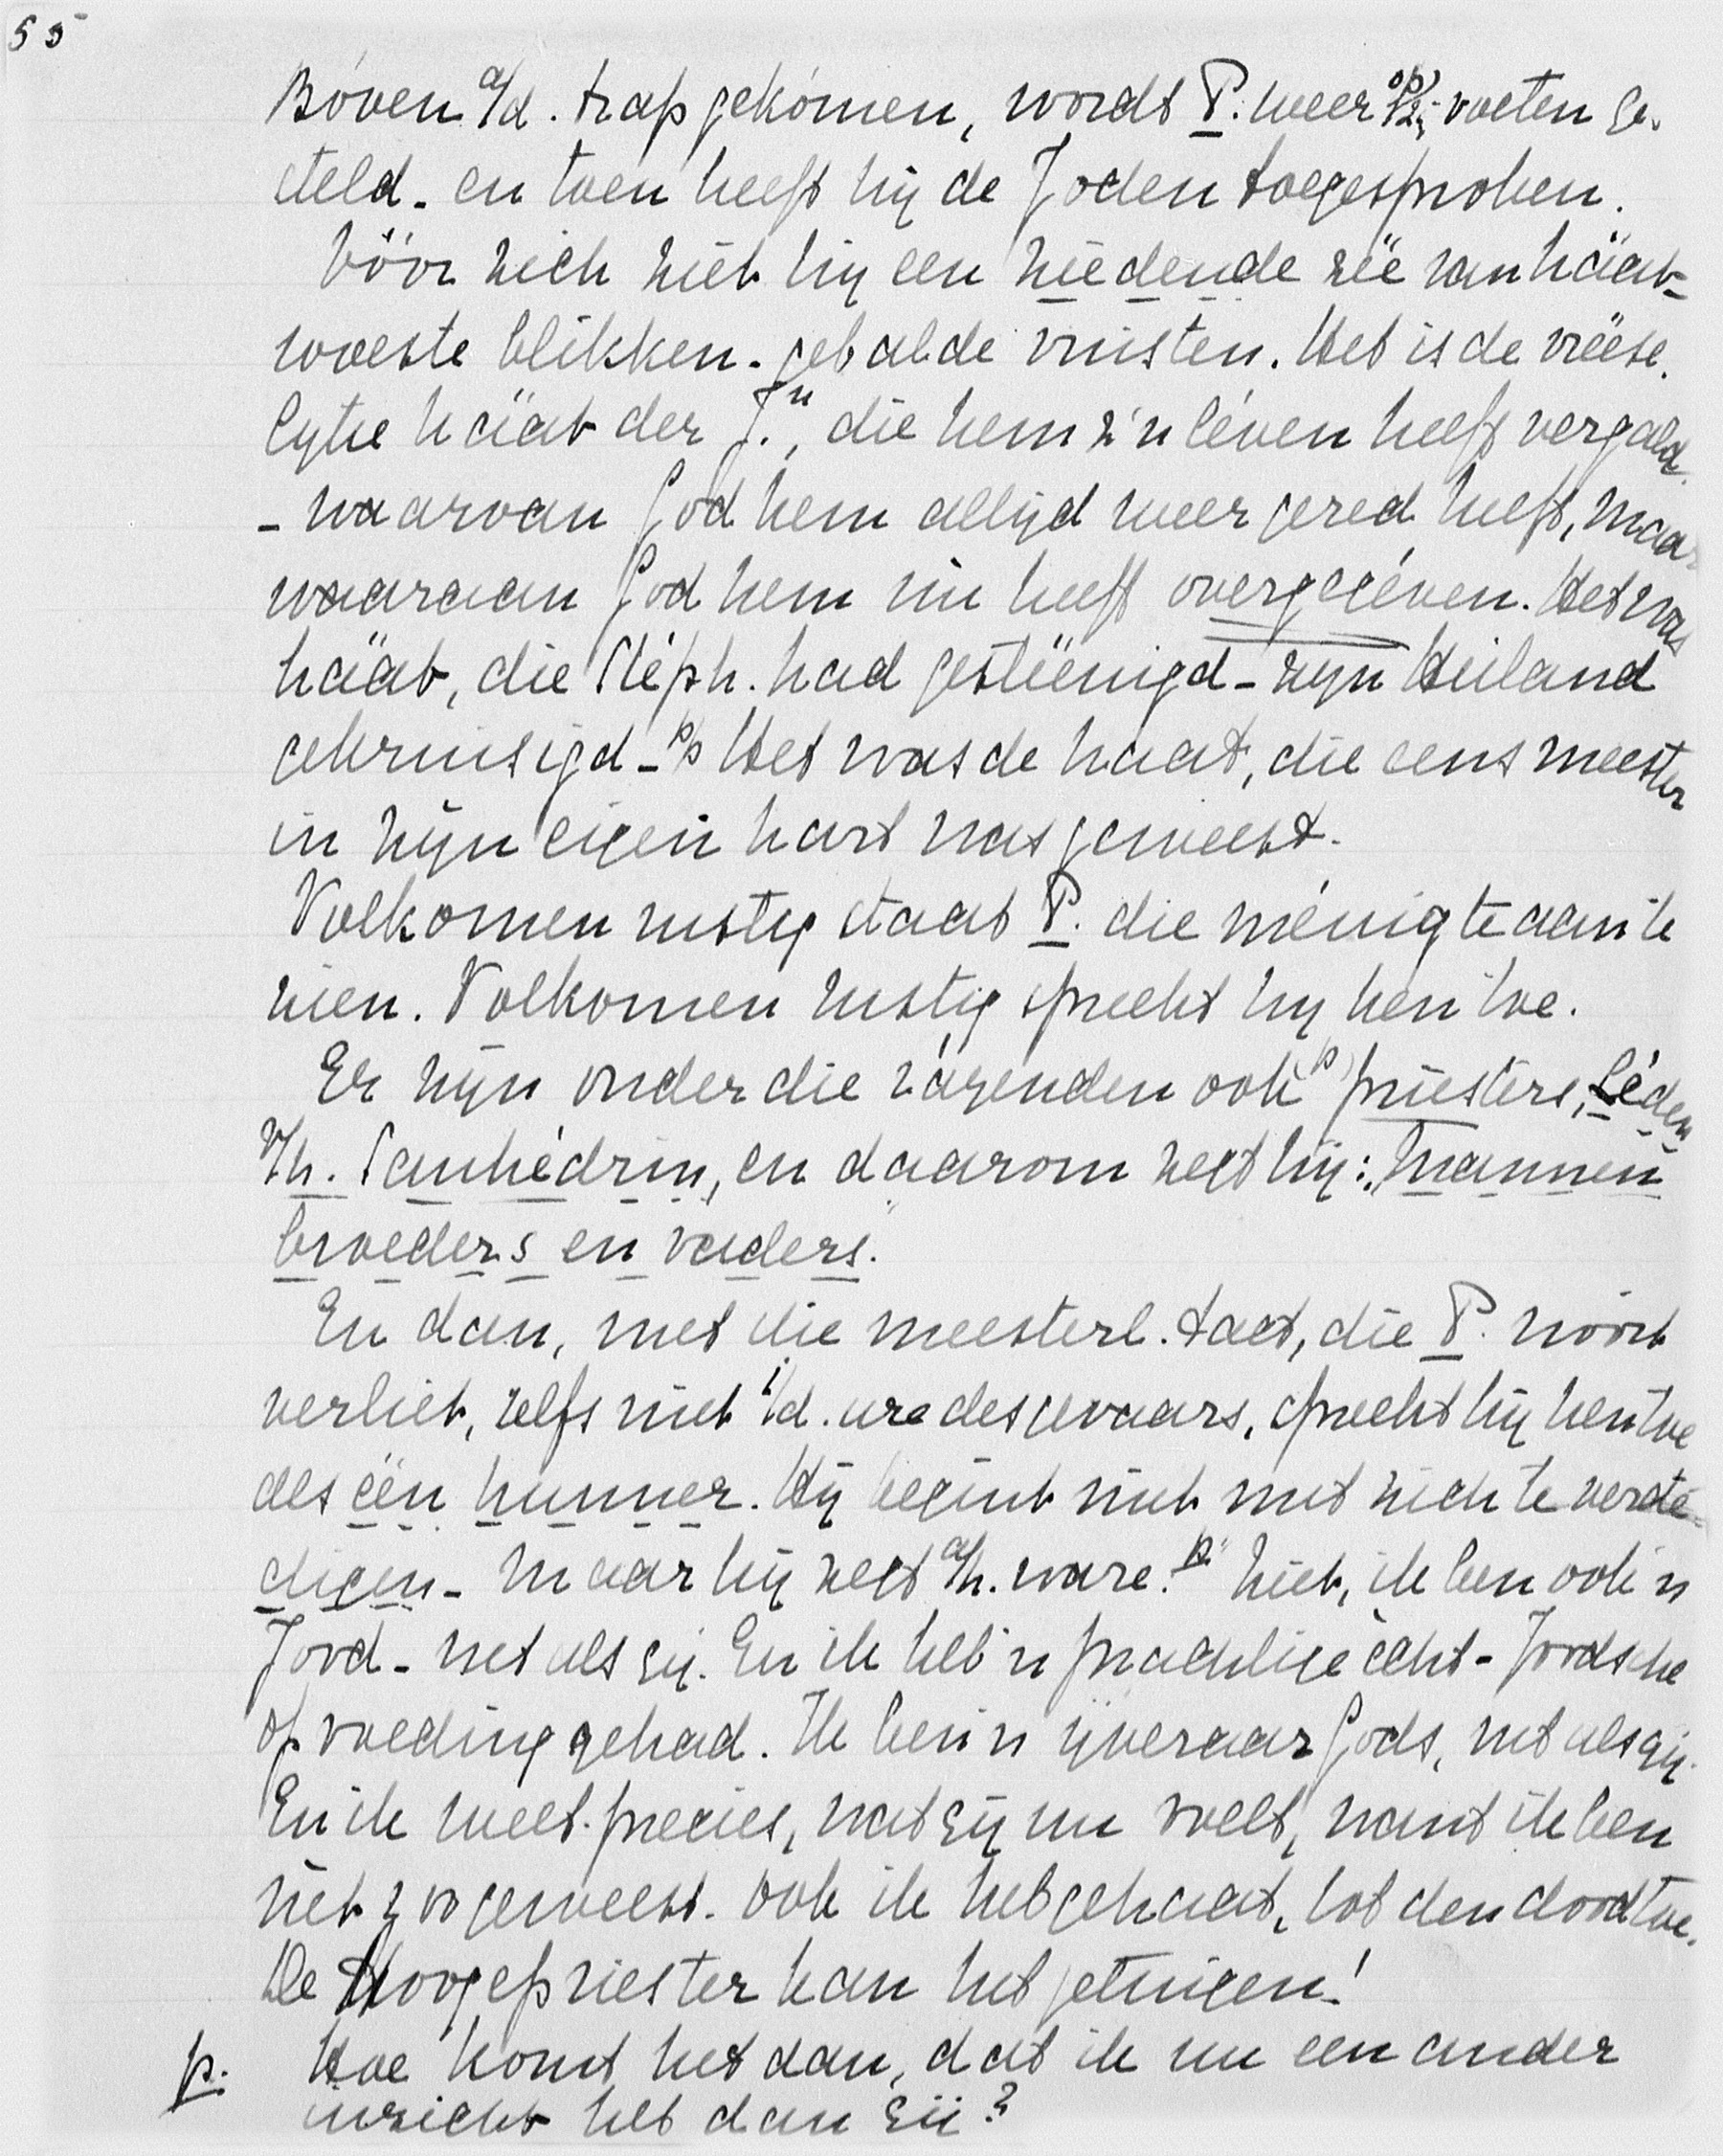 55
Bóven a/d. trap gekómen, wordt P. weer op z'n voeten ge-
steld - en toen heeft hij de Joden toegesproken.
Vóór zich ziet hij een ziedende zëe van häat -
woeste blikken - gebalde vuisten. Het is de vrëese-
lijke häat der J.n, die hem z'n léven heeft vergald.
- waarvan God hem altijd weer gered heeft, maar
waaraan God hem nu heeft overgegéven. Het was
häat, die Stéph. had gestëenigd - zijn Heiland
gekruisigd - p/p Het was de haat, die eens meester
in zijn eigen hart was geweest.
Volkomen rustig staat P. die ménigte aan te
zien. Volkomen rustig spreekt hij hen toe.
Er zijn onder die rázenden ook p) priesters, Léden
v/h. Sanhédrin, en daarom zegt hij: "Mannen
broeders en vaders."
En dan, met die meesterl. tact, die P. nóóit
verliet, zelfs niet i/d. ure des gevaars, spreekt hij hen toe
als één hunner. Hij begint niet met zich te verdé-
digen - Maar hij zegt a/h. ware: p. "Ziet, ik ben ook 'n
Jood - net als gij. En ik heb 'n prachtige echt-Joodsche
opvoeding gehad. Ik ben 'n ijveraar Gods, net als gij.
En ik weet precies, wat gij nu voelt, want ik ben
nét zoo geweest. Ook ik heb gehaat, tot den dood toe.
De Hoogepriester kan het getuigen!
p. Hoe komt het dan, dat ik nu een ander
inzicht heb dan gij?